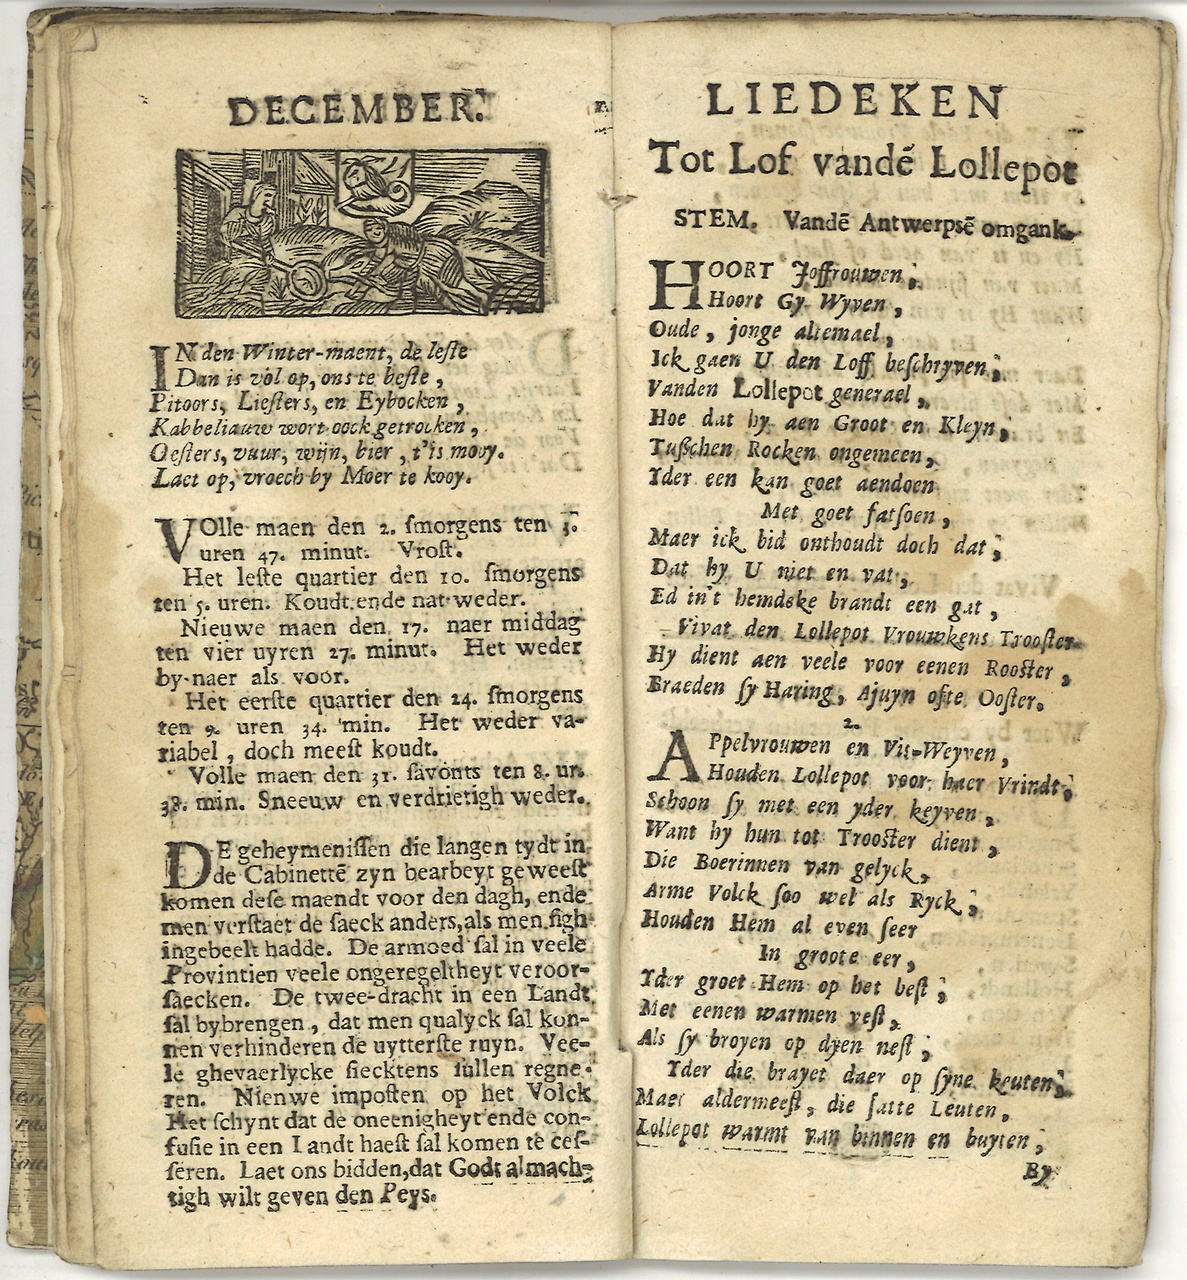 DECEMBER.
IN den Winter-maent, de leſte
Dan is vol op, ons te beſte,
Pitoors, Lieſters, en Eybocken,
Kabbeliauw wort oock getrocken,
Oeſters, vuur, wijn, bier, t'is mooy.
Laet op, vroech by Moer te kooy.
VOlle maen den 2. ſmorgens ten
uren 47. minut. Vroſt.
Het leſte quartier den 10. ſmorgens
ten 5. uren. Koudt ende nat weder.
Nieuwe maen den 17. naer middag
ten vier uyren 27. minut. Het weder
by-naer als voor.
Het eerſte quartier den 24. ſmorgens
ten 9. uren 34. min. Het weder va-
riabel, doch meeſt koudt.
Volle maen den 31. ſavonts ten 8. ur.
38. min. Sneeuw en verdrietigh weder.
DE geheymeniſſen die langen tydt in
de Cabinettē zyn bearbeyt geweeſt
komen deſe maendt voor den dagh, ende
men verſtaet de ſaeck anders, als men ſigh
ingebeelt hadde. De armoed ſal in veele
Provintien veele ongeregeltheyt veroor-
ſaecken. De twee-dracht in een Landt
ſal bybrengen, dat men qualyck ſal kon-
nen verhinderen de uytterſte ruyn. Vee-
le ghevaerlycke ſiecktens ſullen regne-
ren. Nienwe impoſten op het Volck
Het ſchynt dat de oneenigheyt ende con-
fuſie in een Landt haeſt ſal komen te ceſ-
ſeren. Laet ons bidden, dat Godt almach-
tigh wilt geven den Peys.
LIEDEKEN
Tot Lof vandē Lollepot
STEM. Vandē Antwerpsē omgank.
HOORT Joffrouwen,
Hoort Gy Wyven,
Oude, jonge altemael,
Ick gaen U den Loff beſchryven,
Vanden Lollepot generael,
Hoe dat hy aen Groot en Kleyn,
Tuſſchen Rocken ongemeen,
Yder een kan goet aendoen
Met goet fatſoen,
Maer ick bid onthoudt doch dat,
Dat hy U niet en vat,
Ed in't hemdeke brandt een gat,
Vivat den Lollepot Vrouwkens Trooſter
Hy dient aen veele voor eenen Rooſter,
Braeden ſy Haring, Ajuyn ofte Ooſter.
2.
APpelvrouwen en Vis-Weyven,
Houden Lollepot voor haer Vrindt,
Schoon ſy met een yder keyven,
Want hy hun tot Trooſter dient,
Die Boerinnen van gelyck,
Arme Volck ſoo wel als Ryck,
Houden Hem al even ſeer
In groote eer,
Yder groet Hem op het beſt,
Met eenen warmen veſt,
Als ſy broyen op dyen neſt,
Yder die brayet daer op ſyne keuten,
Maer aldermeeſt, die ſatte Leuten,
Lollepot warmt van binnen en buyten,
By